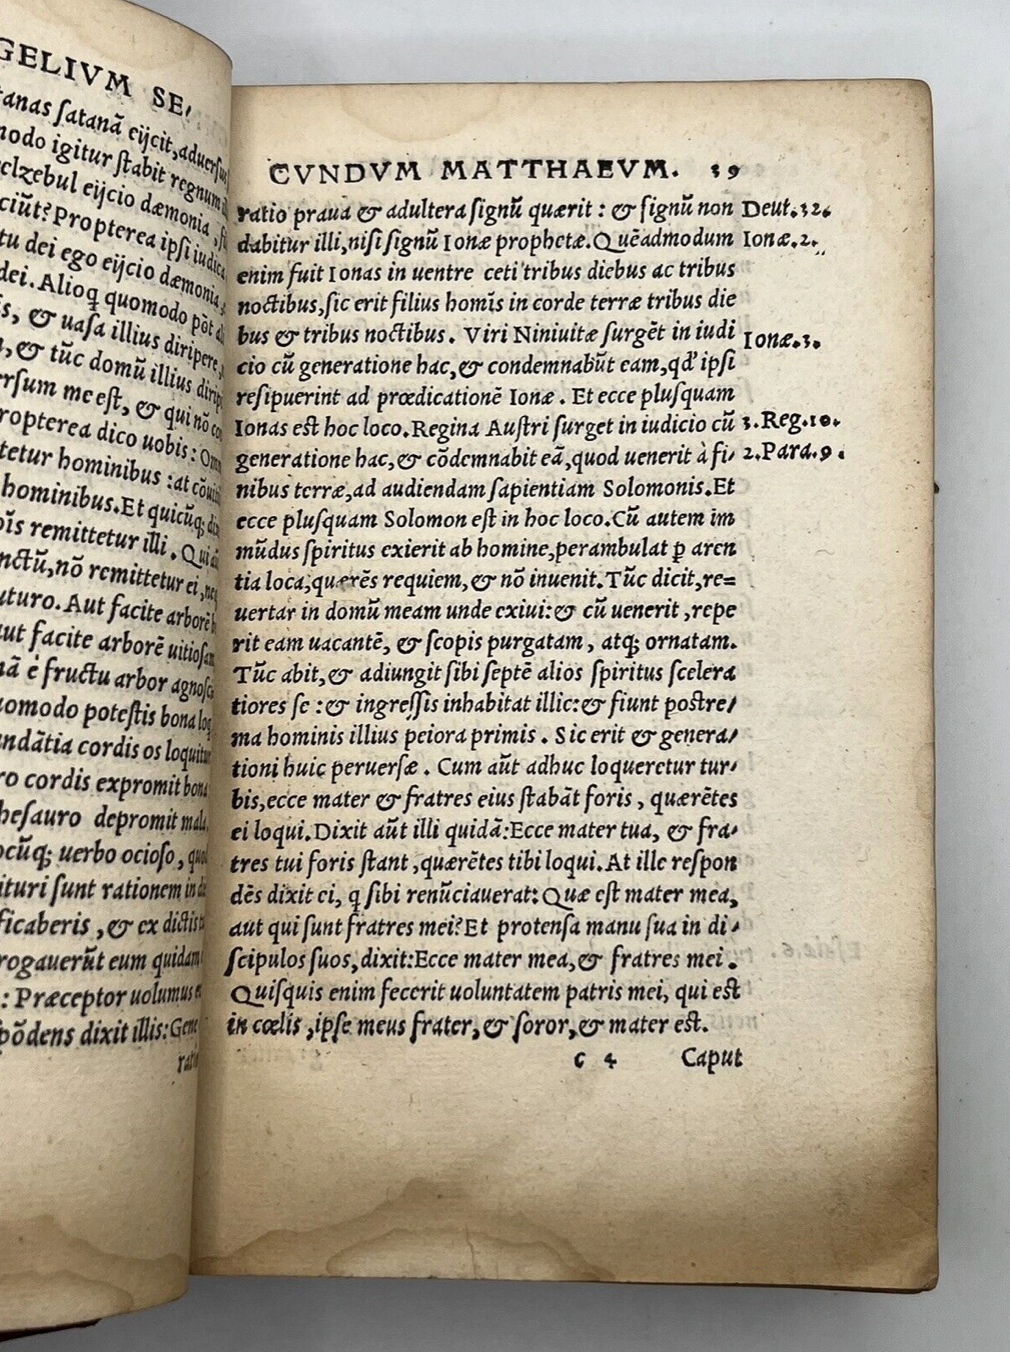 GELIVM SE
tanas ſatanã eijcit, aduerſus
modo igitur ſtabit regnum
eelzebul eijcio dæmonia,
ciũt? Propterea ipſi iudic
tu dei ego eijcio dæmonia,
dei. Alioq quomodo põt
s, & uaſa illius diripere,
, & tũc domũ illius dirip
rſum me eſt, & qui nõ co
ropterea dico uobis: Om
tetur hominibus: at cõuit
hominibus. Et quicũq;
ĩs remittetur illi. Qui
nctũ, nõ remittetur ei, ne
uturo. Aut facite arborẽ
ut facite arborẽ uitioſam
ã è fructu arbor agnoſc
uomodo poteſtis bona loq
undãtia cordis os loquitur
ro cordis expromit bona
heſauro depromit mala
ocũq; uerbo ocioſo, quod
ituri ſunt rationem in di
ficaberis, & ex dictis
rogauerũt eum quidam
: Præceptor uolumus
põdens dixit illis: Gene
ratio
CVNDVM MATTHAEVM. 39
ratio praua & adultera ſignũ quærit: & ſignũ non
Deut.32.
dabitur illi, niſi ſignũ Ionæ prophetæ. Quẽadmodum
Ionæ.2.
enim fuit Ionas in uentre ceti tribus diebus ac tribus
noctibus, ſic erit filius homĩs in corde terræ tribus die
bus & tribus noctibus. Viri Niniuitæ ſurgẽt in iudi
Ionæ.3.
cio cũ generatione hac, & condemnabũt eam, qđ ipſi
reſipuerint ad prœdicationẽ Ionæ. Et ecce pluſquam
Ionas eſt hoc loco. Regina Auſtri ſurget in iudicio cũ
3.Reg.10.
generatione hac, & cõdemnabit eã, quod uenerit à fi-
2.Para.9.
nibus terræ, ad audiendam ſapientiam Solomonis. Et
ecce pluſquam Solomon eſt in hoc loco. Cũ autem im
mũdus ſpiritus exierit ab homine, perambulat ꝑ aren
tia loca, quærẽs requiem, & nõ inuenit. Tũc dicit, re=
uertar in domũ meam unde exiui: & cũ uenerit, repe
rit eam uacantẽ, & ſcopis purgatam, atq; ornatam.
Tũc abit, & adiungit ſibi ſeptẽ alios ſpiritus ſcelera
tiores ſe: & ingreſſis inhabitat illic: & fiunt poſtre-
ma hominis illius peiora primis. Sic erit & genera-
tioni huic peruerſæ. Cum aũt adhuc loqueretur tur-
bis, ecce mater & fratres eius ſtabãt foris, quærẽtes
ei loqui. Dixit aũt illi quidã: Ecce mater tua, & fra-
tres tui foris ſtant, quærẽtes tibi loqui. At ille reſpon
dẽs dixit ei, q ſibi renũciauerat: Quæ eſt mater mea,
aut qui ſunt fratres mei? Et protenſa manu ſua in di-
ſcipulos ſuos, dixit: Ecce mater mea, & fratres mei.
Quiſquis enim fecerit uoluntatem patris mei, qui eſt
in cœlis, ipſe meus frater, & ſoror, & mater eſt.
c 4 Caput